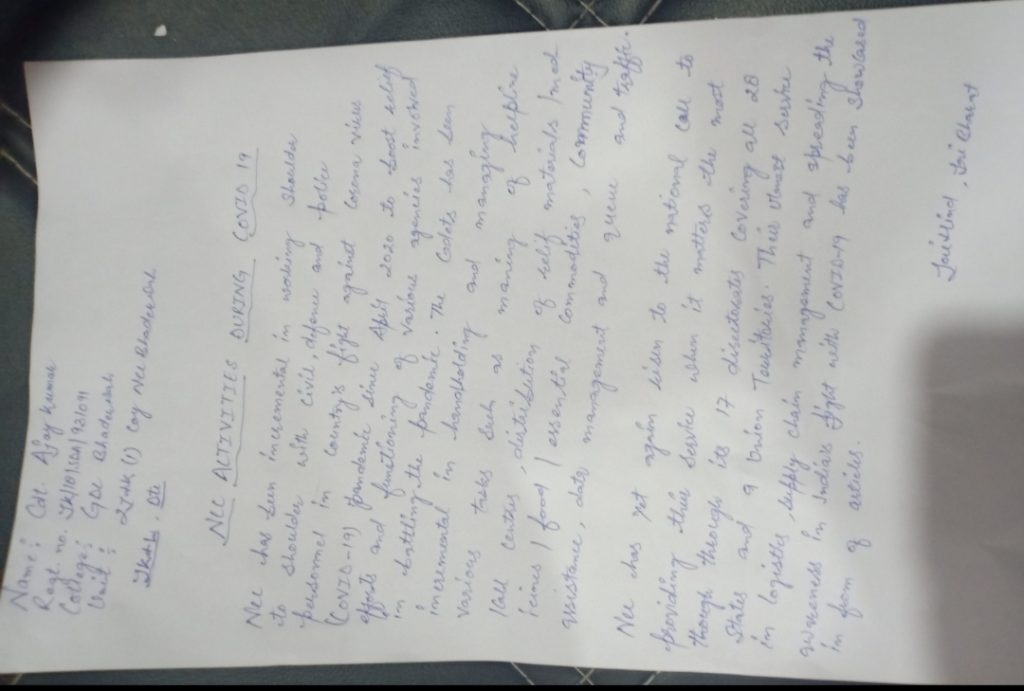 Name: Cdt. Ajay Kumar
Regt. no. JK/18/SDA/921091
College: GDC Bhaderwah
Unit: 2J&K (I) Coy Ncc Bhaderwah
J&K&L. Dte
NCC ACTIVITIES DURING COVID 19
Ncc has been incremental in working shoulder
to shoulder with civil, defense and police
personnel in country's fight against Corona virus
(COVID-19) pandemic since April 2020 to boost relief
efforts and functioning of various agencies involved
in battling the pandemic. The Cadets has been
incremental in handholding and managing
various tasks such as manning of helpline
/call centres, distribution of relief materials /med
icines / food / essential commodities, Community
assistance, data management and queue and traffic.
Ncc has yet again risen to the national call to
providing their service when it matters the most
though through its 17 directorates covering all 28
States and 9 Union Territories. Their utmost service
in logistics, supply chain management and spreading the
awareness in India's fight with COVID-19 has been showcased
in form of articles.
Jai Hind, Jai Bharat